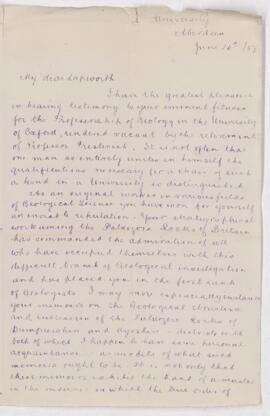 University
Aberdeen
June 16th /87
My dear Lapworth
I have the greatest pleasure
in bearing testimony to your eminent fitness
for the Professorship of Geology in the University
of Oxford, rendered vacant by the retirement
of Professor Prestwich. It is not often that
one man so entirely unites in himself the
qualifications necessary for a chair of such
a kind in a University so distinguished.
As an original worker in various fields
of Geological Science you have won for yourself
an enviable reputation. Your stratigraphical
work among the Palaeozoic Rocks of Britain
has commanded the admiration of all
who have occupied themselves with this
difficult branch of Geological investigation
and has placed you in the front rank
of Geologists. I may more especially instance
your memoirs on the Geological structure
and succession of the Palaeozoic Rocks of
Dumfriesshire and Ayrshire - districts with
both of which I happen to have some personal
acquaintance - as models of what such
memoirs ought to be. It is not only that
these memoirs exhibit the hand of a master
in the manner in which the true order of